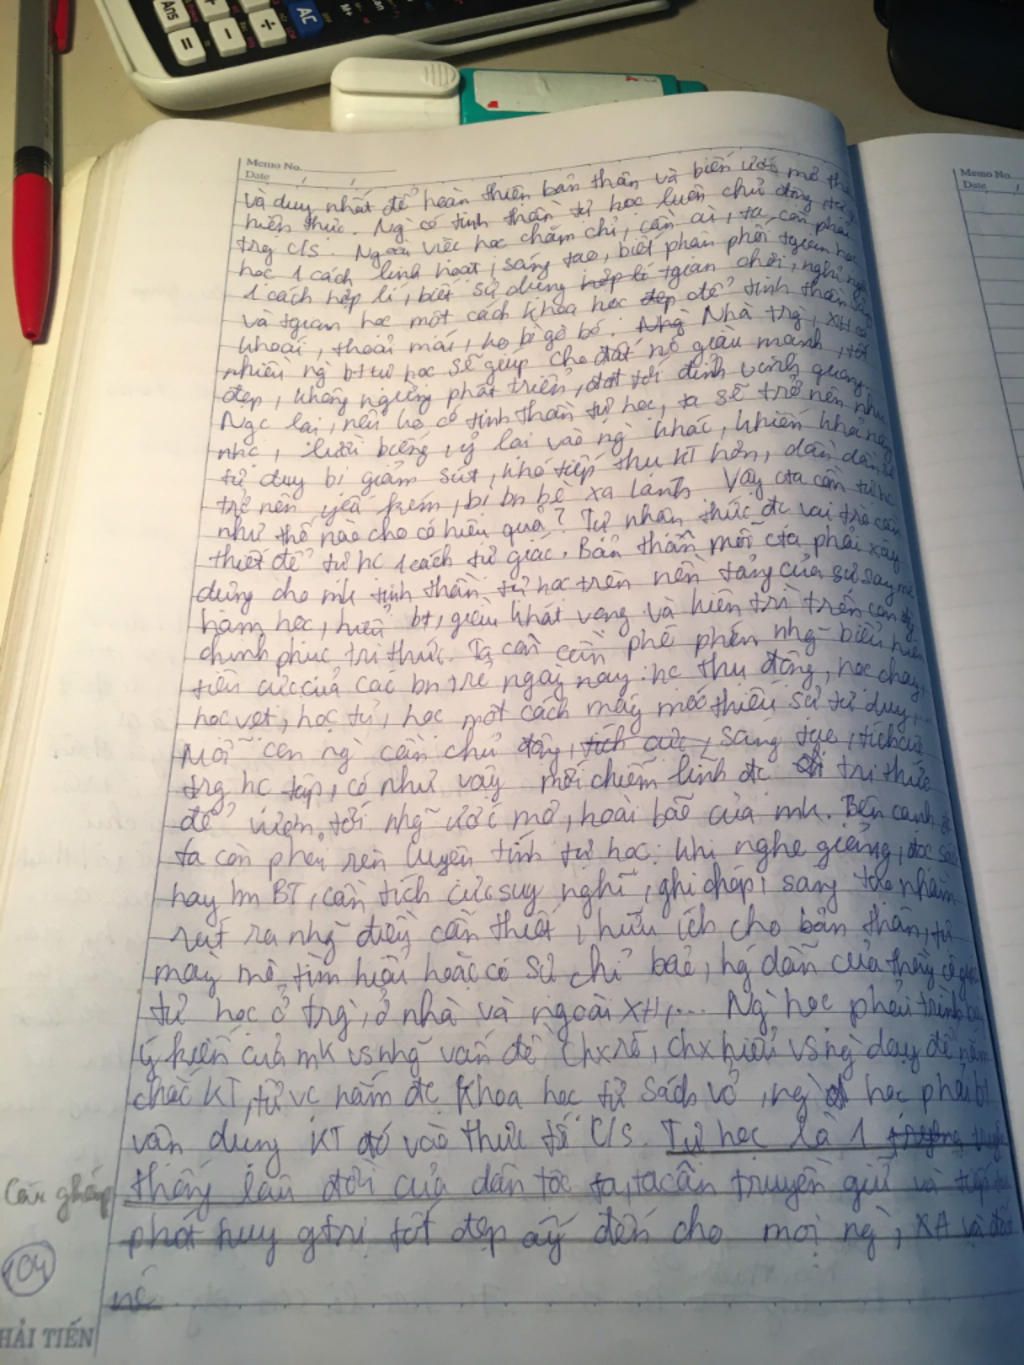 Ans
AC
M+
=
Memo No.
Date / /
Memo No.
Date /
và duy nhất để hoàn thiện bản thân và biến ước mơ th
hiện thực. Ng có tinh thần tự học luôn chủ động
trg c/s. Ngoài việc học chăm chỉ, cần cù, ta cần phải
học 1 cách linh hoạt, sáng tạo, biết phân phối tgian học
1 cách hợp lí, biết sử dụng hợp lí tgian chơi, nghỉ ngơi
và tgian học một cách khoa học để tinh thần
khoái, thoải mái, ko bị gò bó. Nhà trg, XH có
nhiều ng bt tự học sẽ giúp cho đất nc giàu mạnh, tốt
đẹp, không ngừng phát triển, đạt tới đỉnh vinh quang.
Ngc lại, nếu ko có tinh thần tự học, ta sẽ trở nên
nhc, lười biếng, ỷ lại vào ng khác, khiến khả năng
tư duy bị giảm sút, khó tiếp thu KT hơn, dần dần
trở nên yếu kém, bị bn bè xa lánh. Vậy cta cần tự hc
như thế nào cho có hiệu quả? Tự nhận thức đc vai trò cần
thiết để tự hc 1 cách tự giác. Bản thân mỗi cta phải xây
dựng cho mk tinh thần tự học trên nền tảng của sự say mê
ham học, hiểu bt, giàu khát vọng và kiên trì trên con đg
chinh phục tri thức. Ta còn cần phê phán nhg biểu hiện
tiêu cực của các bn trẻ ngày nay: hc thụ động, học chay,
học vẹt, học tủ, học một cách máy móc thiếu sự tư duy,...
Mỗi con ng cần chủ động, tích cực, sáng tạo, tích cực
trg hc tập, có như vậy mới chiếm lĩnh đc tri thức
để vươn tới nhg ước mơ, hoài bão của mk. Bên cạnh đó
ta còn phải rèn luyện tính tự học: khi nghe giảng, đọc sách
hay lm BT, cần tích cực suy nghĩ, ghi chép, sáng tạo nhằm
rút ra nhg điều cần thiết, hữu ích cho bản thân, tự
mày mò tìm hiểu hoặc có sự chỉ bảo, hg dẫn của thầy cô giáo
tự học ở trg, ở nhà và ngoài XH,... Ng học phải trình bày
ý kiến của mk vs nhg vấn đề chx rõ, chx hiểu vs ng dạy để nắm
chắc KT, từ vc nắm đc khoa học từ sách vở, ng học phải bt
vận dụng KT đó vào thực tế c/s. Tự học là 1 truyền
thống lâu đời của dân tộc ta, ta cần truyền giữ và tiếp tục
phát huy gtrị tốt đẹp ấy đến cho mọi ng, XH và đất
nc
Cần ghép
104
HẢI TIẾN